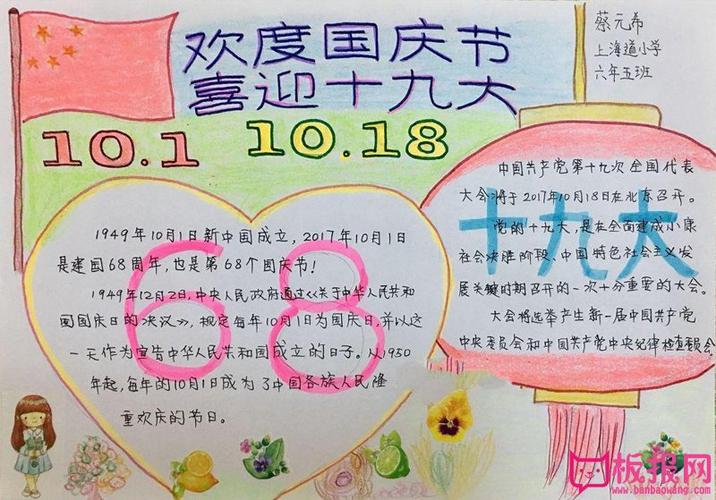 欢度国庆节
喜迎十九大
蔡元希
上海道小学
六年五班
10.1
10.18
68
1949年10月1日新中国成立,2017年10月1日
是建国68周年,也是第68个国庆节!
1949年12月2日,中央人民政府通过《关于中华人民共和
国国庆日的决议》,规定每年10月1日为国庆日,并以这
一天作为宣告中华人民共和国成立的日子。从1950
年起,每年的10月1日成为了中国各族人民隆
重欢庆的节日。
十九大
中国共产党第十九次全国代表
大会将于2017年10月18日在北京召开。
党的十九大,是在全面建成小康
社会决胜阶段、中国特色社会主义发
展关键时期召开的一次十分重要的大会。
大会将选举产生新一届中国共产党
中央委员会和中国共产党中央纪律检查委员会
板报网
www.banbaowang.com